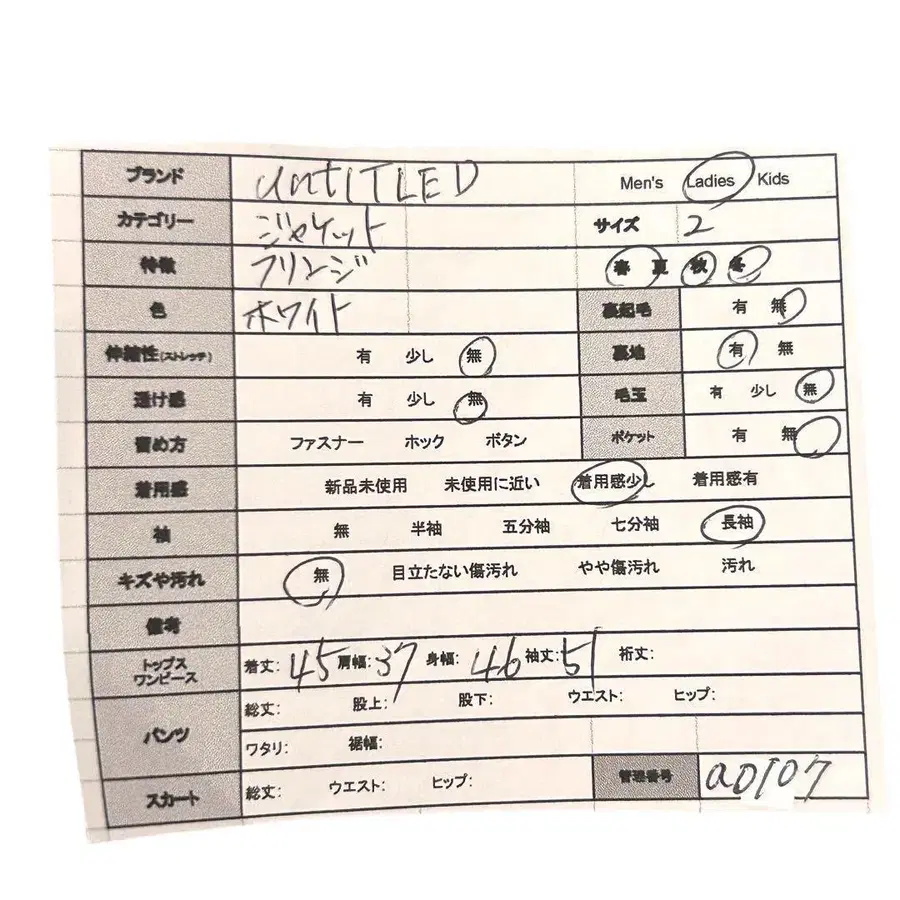 ブランド untITLED Men's Ladies Kids
カテゴリー ジャケット サイズ 2
特徴 フリンジ 春 夏 秋 冬
色 ホワイト 裏起毛 有 無
伸縮性(ストレッチ) 有 少し 無 裏地 有 無
透け感 有 少し 無 毛玉 有 少し 無
留め方 ファスナー ホック ボタン ポケット 有 無
着用感 新品未使用 未使用に近い 着用感少し 着用感有
袖 無 半袖 五分袖 七分袖 長袖
キズや汚れ 無 目立たない傷汚れ やや傷汚れ 汚れ
備考
トップス
ワンピース 着丈: 45 肩幅: 37 身幅: 46 袖丈: 51 裄丈:
パンツ 総丈: 股上: 股下: ウエスト: ヒップ:
ワタリ: 裾幅:
スカート 総丈: ウエスト: ヒップ: 管理番号 a0107